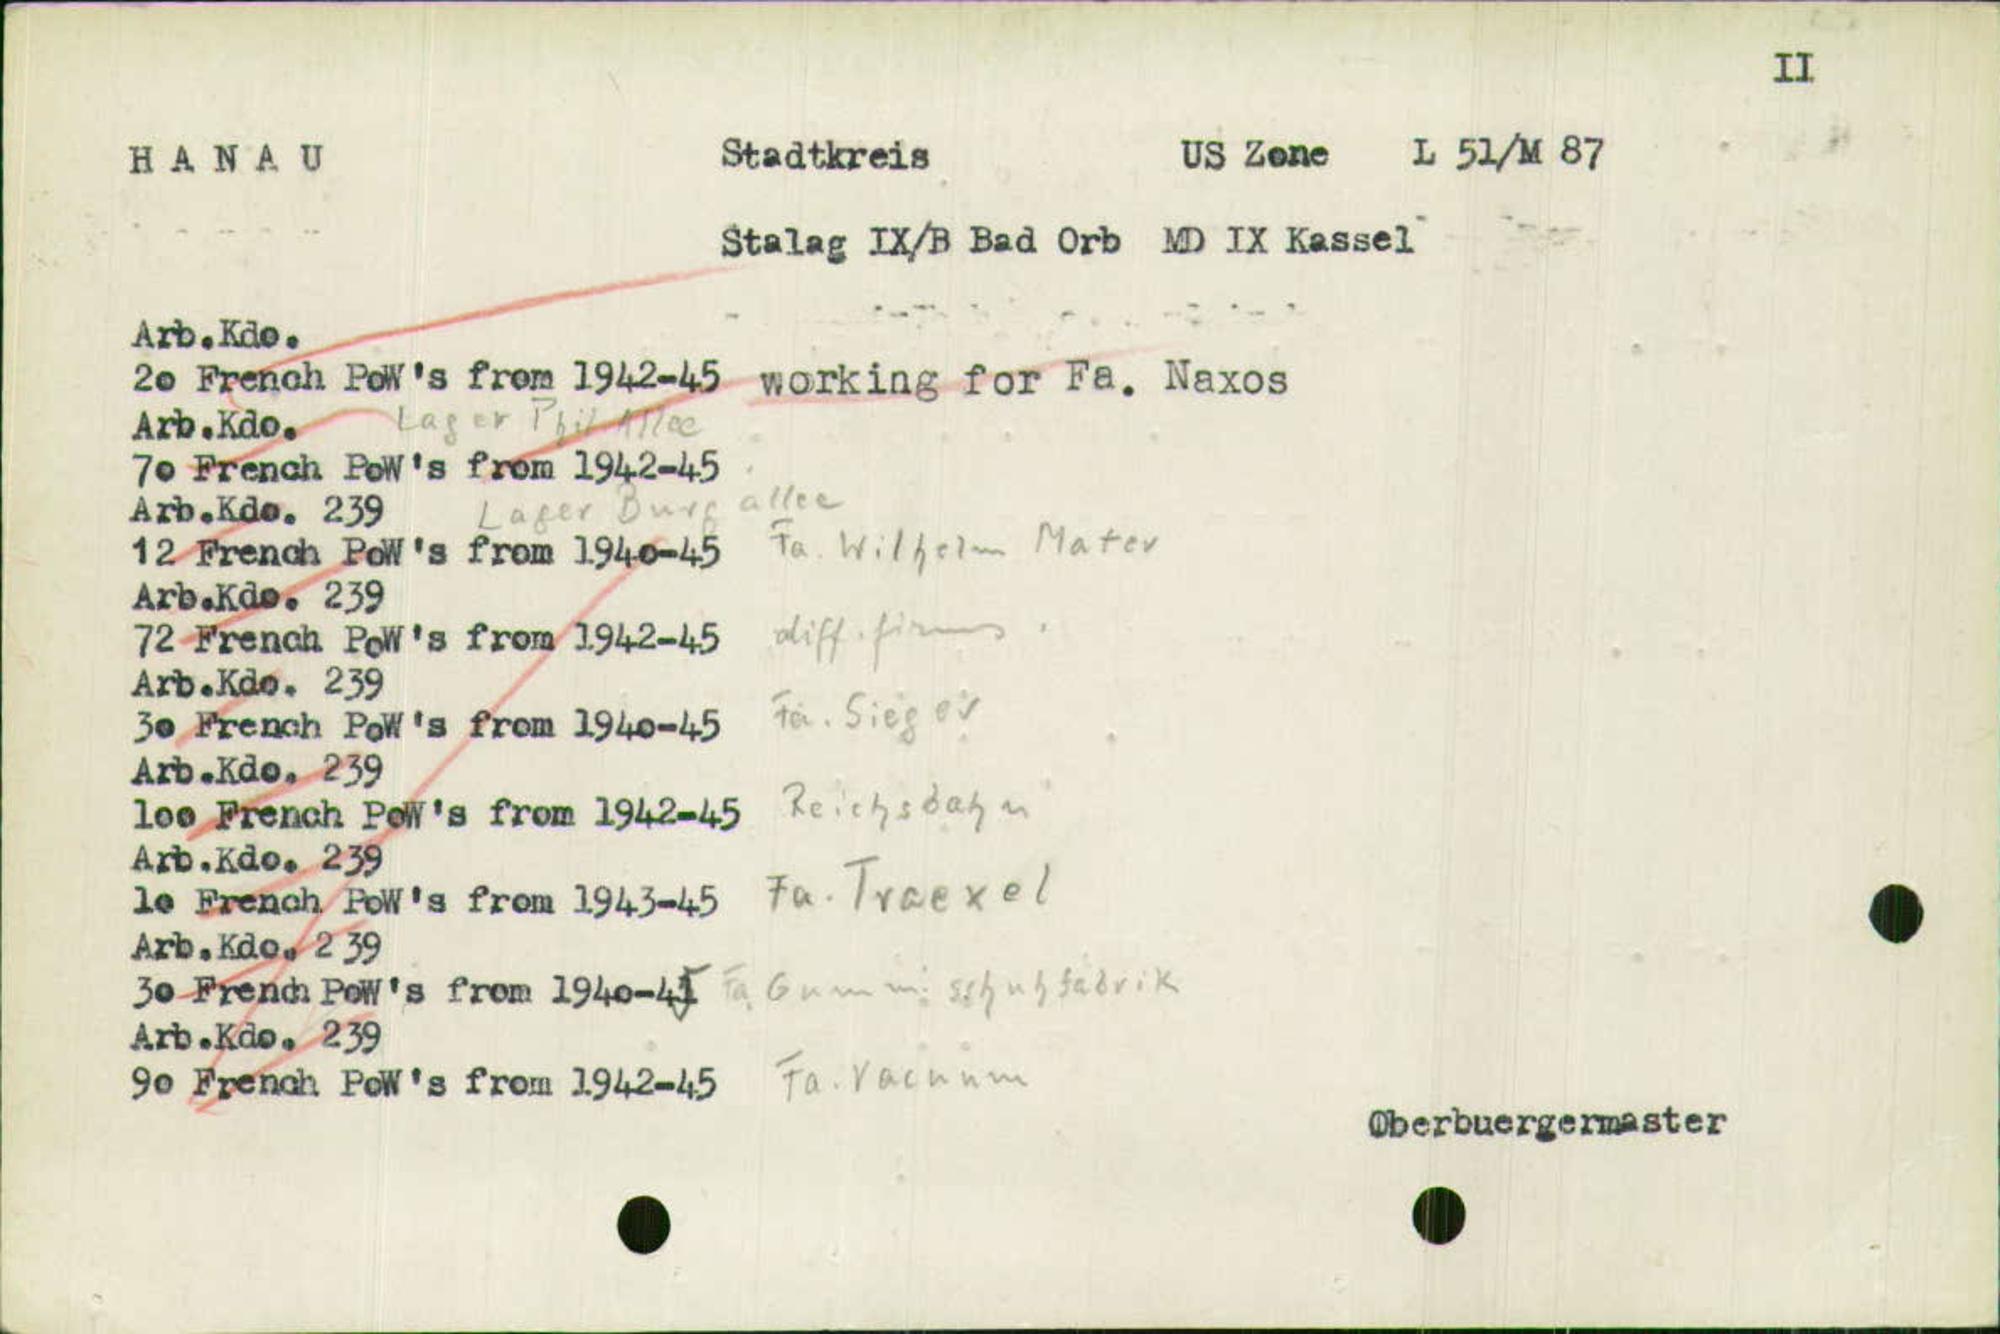 II
HANAU Stadtkreis US Zone L 51/M 87
Stalag IX/B Bad Orb MD IX Kassel
Arb.Kdo.
2o French PoW's from 1942-45 working for Fa. Naxos
Arb.Kdo. Lager Phil. Allee
7o French PoW's from 1942-45
Arb.Kdo. 239 Lager Burgallee
12 French PoW's from 194o-45 Fa. Wilhelm Mater
Arb.Kdo. 239
72 French PoW's from 1942-45 diff. firms.
Arb.Kdo. 239
3o French PoW's from 194o-45 Fa. Sieger
Arb.Kdo. 239
loo French PoW's from 1942-45 Reichsbahn
Arb.Kdo. 239
lo French PoW's from 1943-45 Fa. Traexel
Arb.Kdo. 239
3o French PoW's from 194o-45 Fa. Gummischuhfabrik
Arb.Kdo. 239
9o French PoW's from 1942-45 Fa. Vacuum
Oberbuergermaster